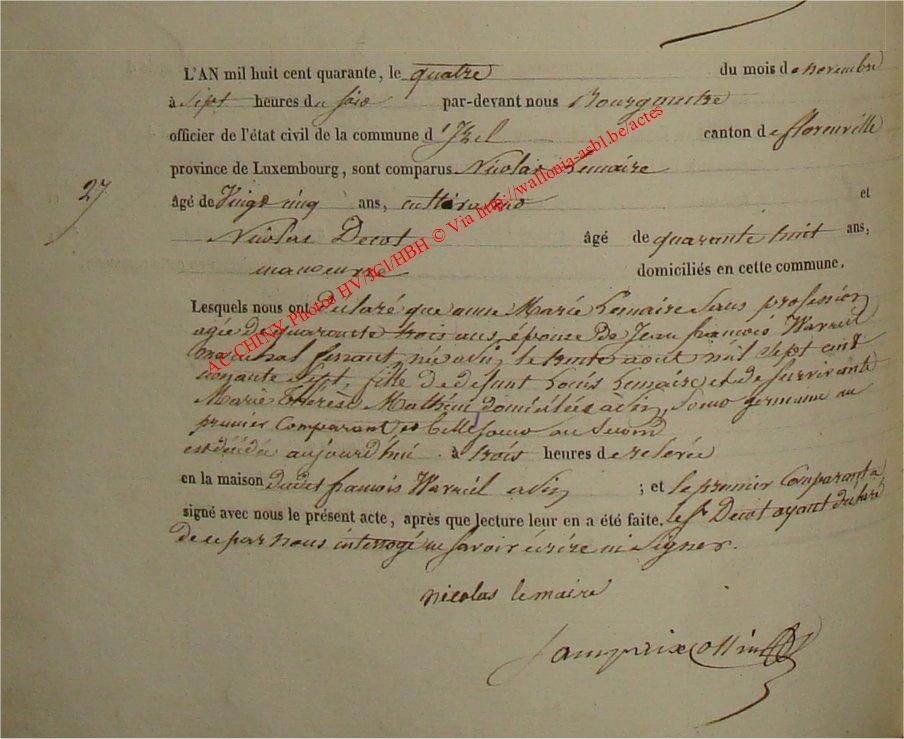 L'AN mil huit cent quarante, le quatre du mois de novembre
à sept heures du soir par-devant nous Bourgmestre
officier de l'état civil de la commune d'Izel canton de florenville
province de Luxembourg, sont comparus Nicolas Lemaire
27
âgé de Vingt cinq ans, cultivateur et
Nicolas Decot âgé de quarante huit ans,
manoeuvre domiciliés en cette commune.
Lesquels nous ont déclaré que anne Marie Lemaire sans profession
agée de quarante trois ans, épouse de Jean françois Warniel
marechal ferrant, née à Pin, le trente aout mil sept cent
nonante sept, fille de defunt Louis Lemaire et de survivante
Marie Thérèse Mathieu domiciliées à Pin, Soeur germaine au
premier Comparant et belle soeur au second
est décédée aujourd'hui à trois heures de relevée
en la maison dudit françois Warniel a Pin ; et le premier Comparant a
signé avec nous le présent acte, après que lecture leur en a été faite. le Sr Decot ayant déclaré
de ce par nous interrogé ne savoir écrire ni signer.
nicolas lemaire
AC CHINY Photos HV/JCI/HBH © Via http://wallonia-asbl.be/actes